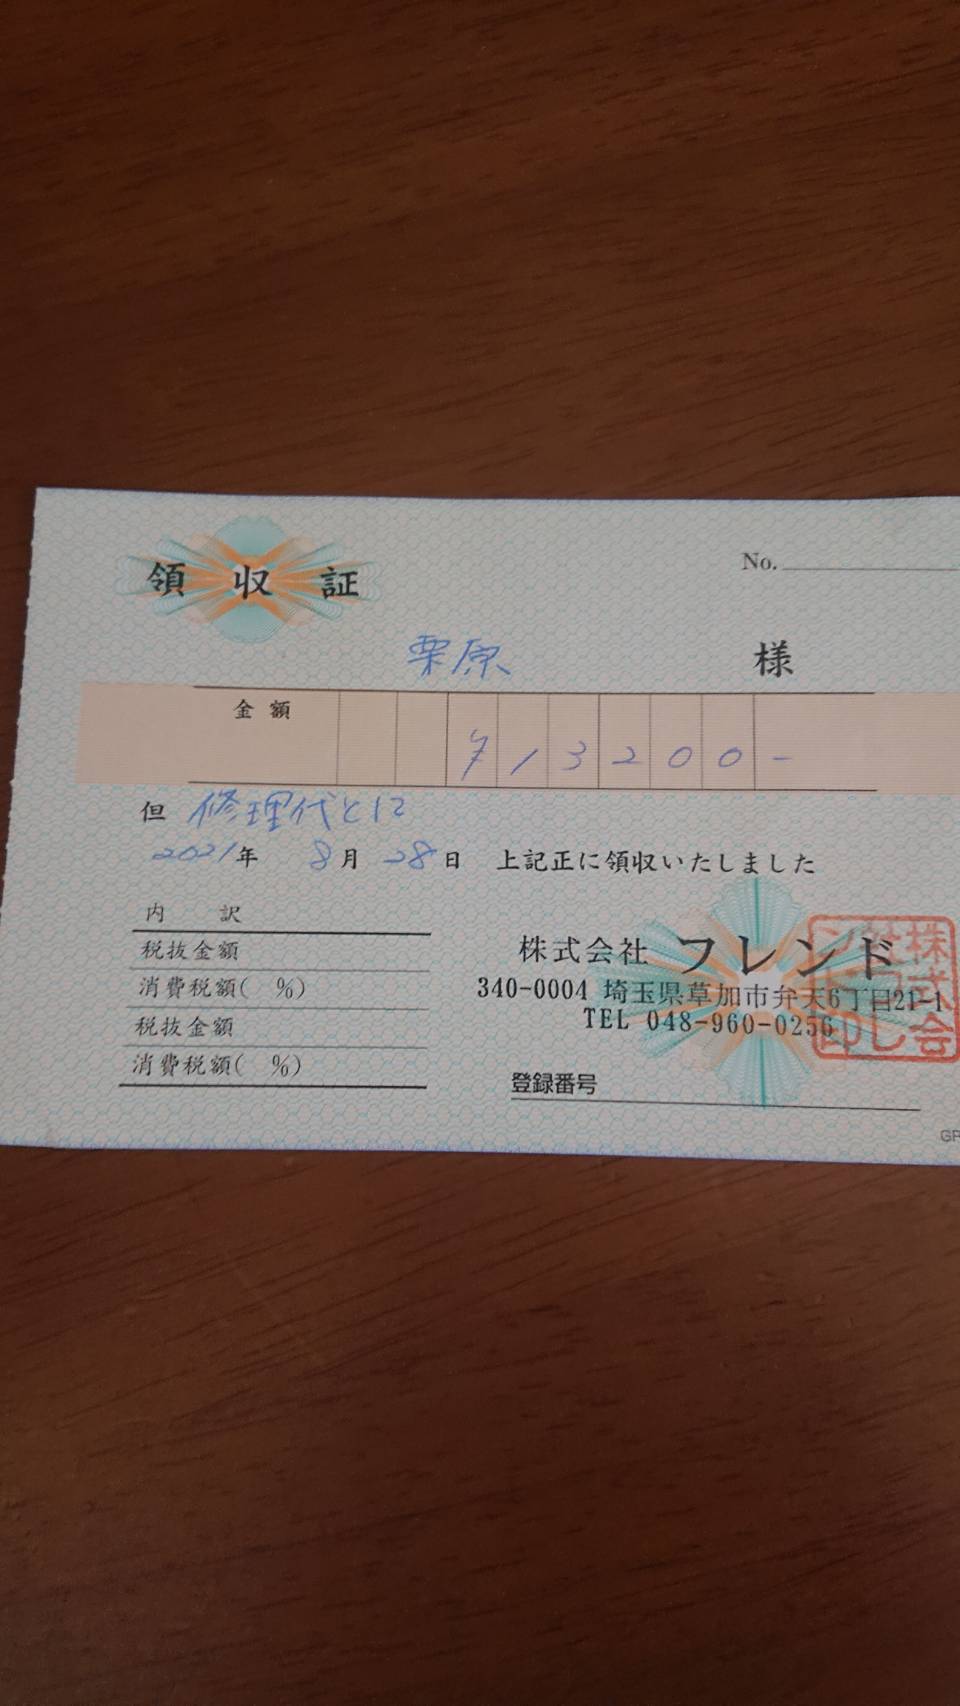 領 収 証
No.
栗原 様
金 額 ¥13200-
但 修理代として
2021年 8月 28日 上記正に領収いたしました
内 訳
税抜金額
消費税額( %)
税抜金額
消費税額( %)
株式会社 フレンド
340-0004 埼玉県草加市弁天6丁目21-1
TEL 048-960-0256
登録番号
GP